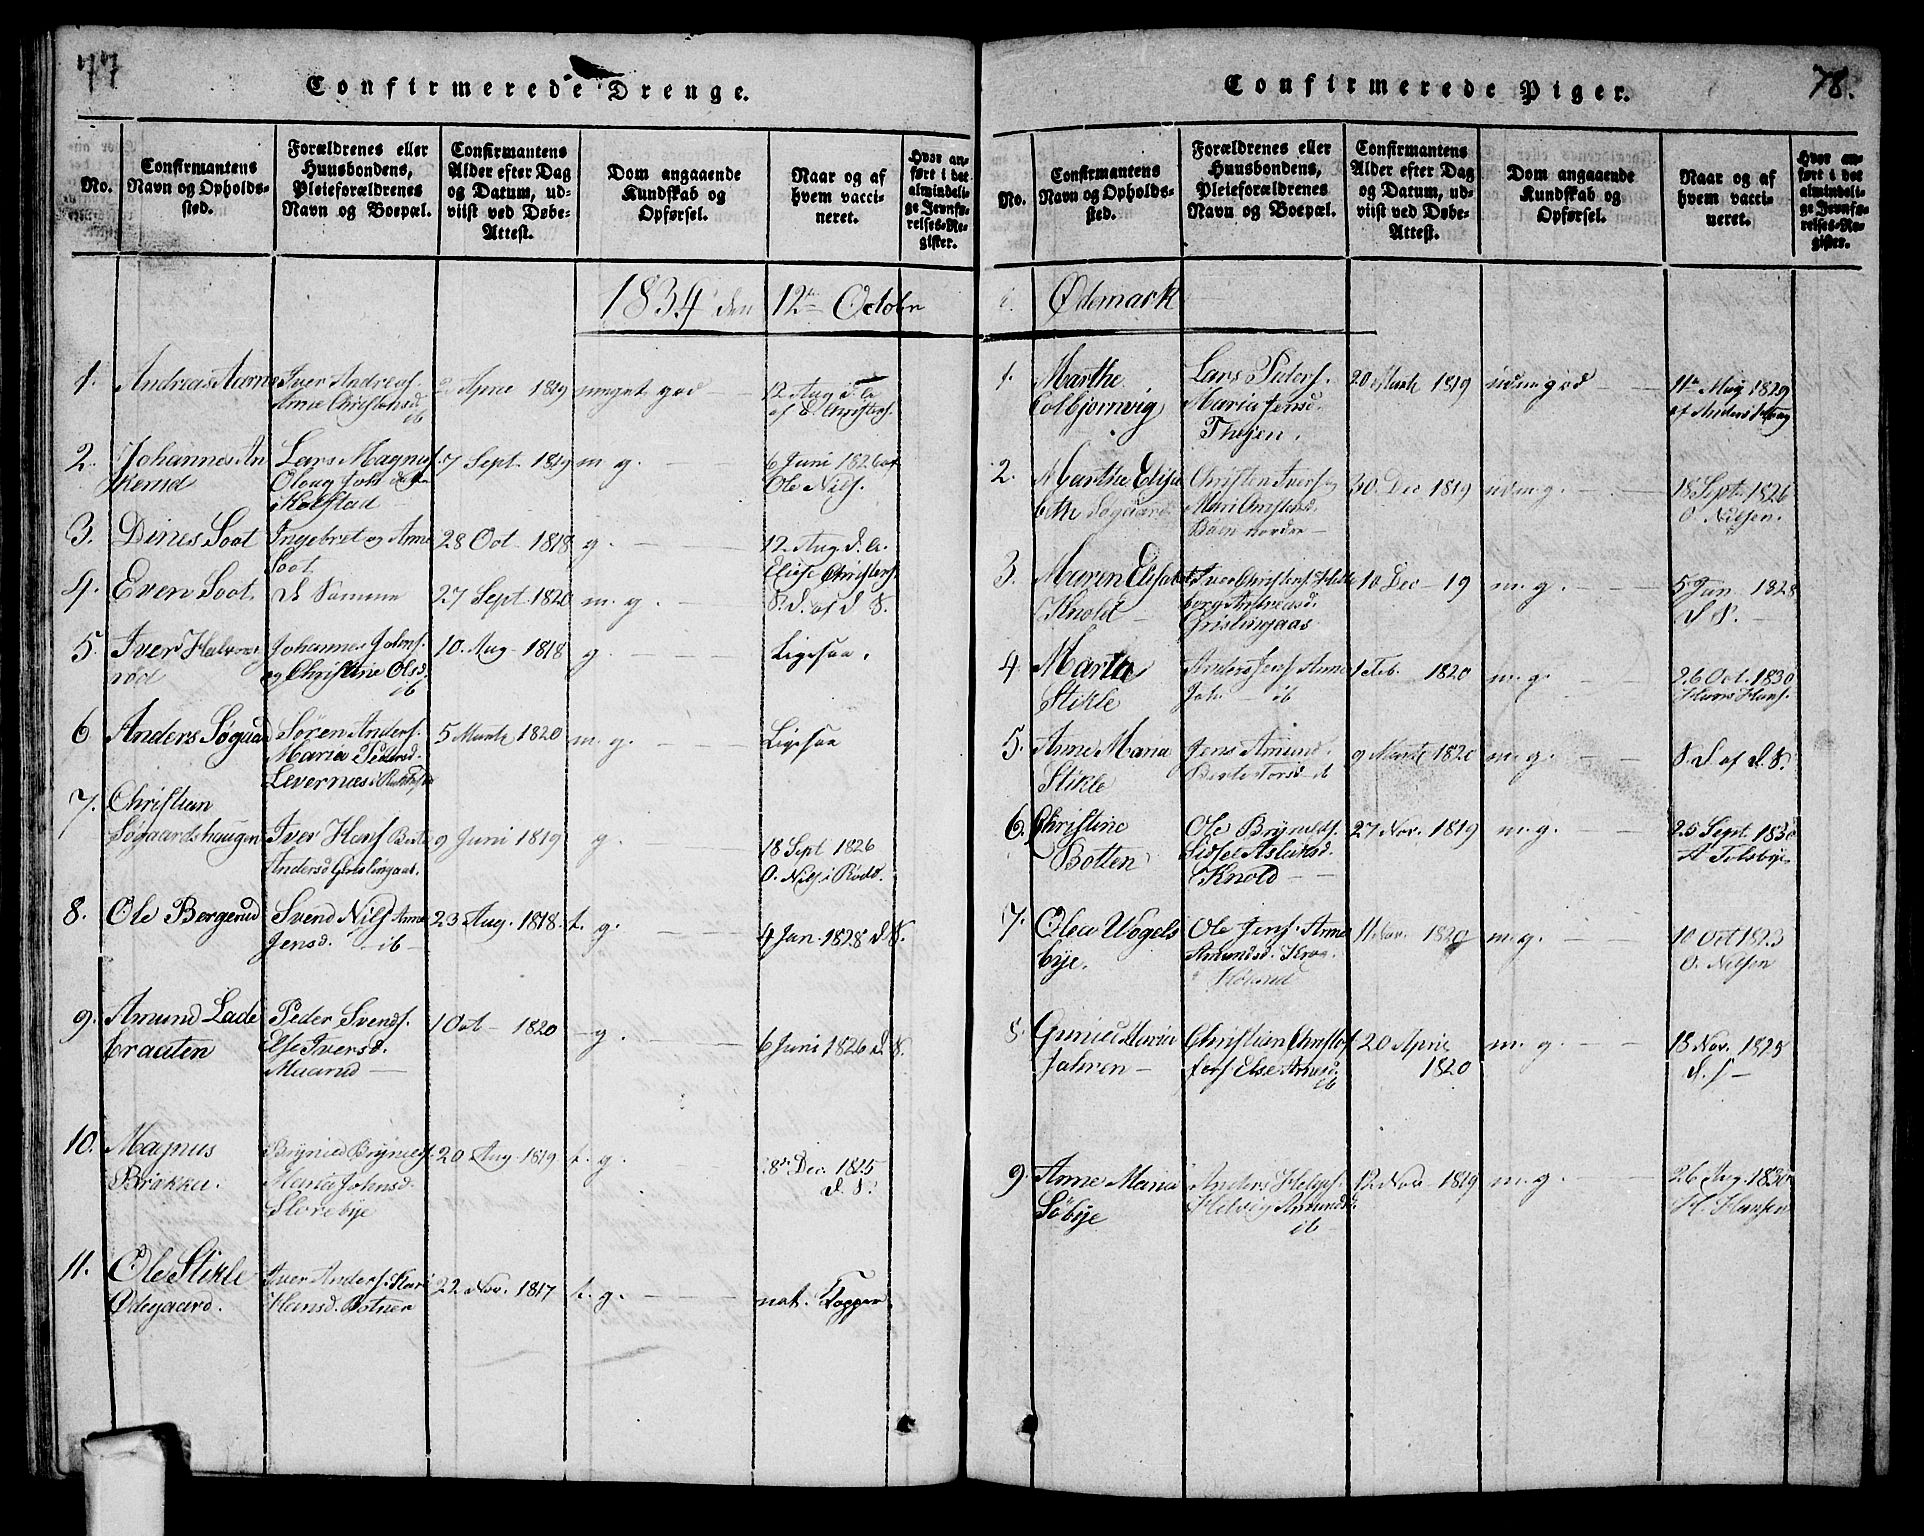 77
Confirmerede Drenge.
No.
Confirmantens
Navn og Opholds-
sted.
Forældrenes eller
Huusbondens,
Pleieforældrenes
Navn og Boepæl.
Confirmantens
Alder efter Dag
og Datum, ud-
viist ved Døbe-
Attest.
Dom angaaende
Kundskab og
Opførsel.
Naar og af
hvem vacci-
neret.
Hvor an-
ført i det
almindeli-
ge Jevnfø-
relses-Re-
gister.
1834 den 12te Octobr
1. Andreas
Iver Andreas.
Anne Christensd.
ib
Aprie 1819
meget god
12 Aug
2. Johannes An
kerud
Lars Magnus.
Kolstad
7 Sept. 1819
m. g.
6 Juni 1826 af
Ole Nils.
3. Dines Soot
Ingebret og Anne
Soot.
28 Oct. 1818
g.
12 Aug. d. A.
Elise Christens.
4. Even Soot
D Samme
27 Sept. 1820
m. g.
S. D. af d. S.
5. Iver Halvors
rød
Johannes
og Christine Olsd.
ib
10. Aug. 1818
g.
Ligesaa.
6 Anders Søgaar
Søren Anders.
Maria Pedersd.
Levernæs i
5 Marts 1820
m. g.
Ligesaa
7. Christian
Søgaardshaugen
Iver Hans. Berte
Andersd Grislingaas.
9 Juni 1819
g.
18 Sept 1826
O. Nils. i Rød.
8. Ole Bergerud
Svend Nils. Anne
Jensd. ib
23 Aug. 1818.
t. g.
4 Jan. 1828 d. S.
9. Amund Lade
braaten
Peder Svends.
Else Iversd.
Maarud
1 Oct 1820
g.
6 Juni 1826 d. S.
10. Magnus
Brække.
Brynild Brynilds.
Maria Johnsd.
Storebye
20 Aug. 1819
t. g.
8de Dec. 1825
d. S.
11. Ole Stikle
Ødegaard.
Iver Anders. Kari
Hansd. Botner
22 Nov. 1817
t. g.
nat. Kopper
78.
Confirmerede Piger.
No.
Confirmantens
Navn og Opholds-
sted.
Forældrenes eller
Huusbondens,
Pleieforældrenes
Navn og Boepæl.
Confirmantens
Alder efter Dag
og Datum, ud-
viist ved Døbe-
Attest.
Dom angaaende
Kundskab og
Opførsel.
Naar og af
hvem vacci-
neret.
Hvor an-
ført i det
almindeli-
ge Jevnfø-
relses-Re-
gister.
i Ødemark
1. Marthe
Colbjørnvig
Lars Peders.
Maria Jensd.
Thejen.
20 Marts 1819
udm. god
11te Maj 1829
af Anders
2. Marthe Elisa
beth Søgaard
Christen Ivers. og
Mari
Bøen nordre
30. Dec 1819
udm. g.
18 Sept. 1826
O. Nilsen.
3. Maren Elisabet
Knold
Iver Christens.
berg Andreasd.
Grislingaas
10 Dec 19
m. g.
5 Jan. 1828
d S.
4. Marta
Stikle
Anders Jens. Anne
Joh. ib
1 Feb. 1820
m. g.
26 Oct. 1830
Hans Hans.
5. Anne Maria
Stikle
Jens Amund.
Berte Torsd. ib
9 Marts 1820
m. g.
S. D. af d. S.
6. Christine
Botten
Ole Brynilds.
Sidsel Aslaksd.
Knold
27 Nov. 1819
m. g.
25 Sept. 1830
A Tolsbye
7. Olea Wogels
bye.
Ole Jens. Anne
Amundsd.
1 Nov. 1820
m. g.
10 Oct 1823
O. Nilsen
8. Gunild Maria
Jahren
Christian Christof
fers. Else
ib
20 Aprie
1820
m. g.
13 Nov. 1825
d. S
9. Anne Maria
Søbye
Anders Helges.
Helvig Amunds.
ib
12 Nov. 1819
m. g.
26 Aug. 1830
H. Hansen